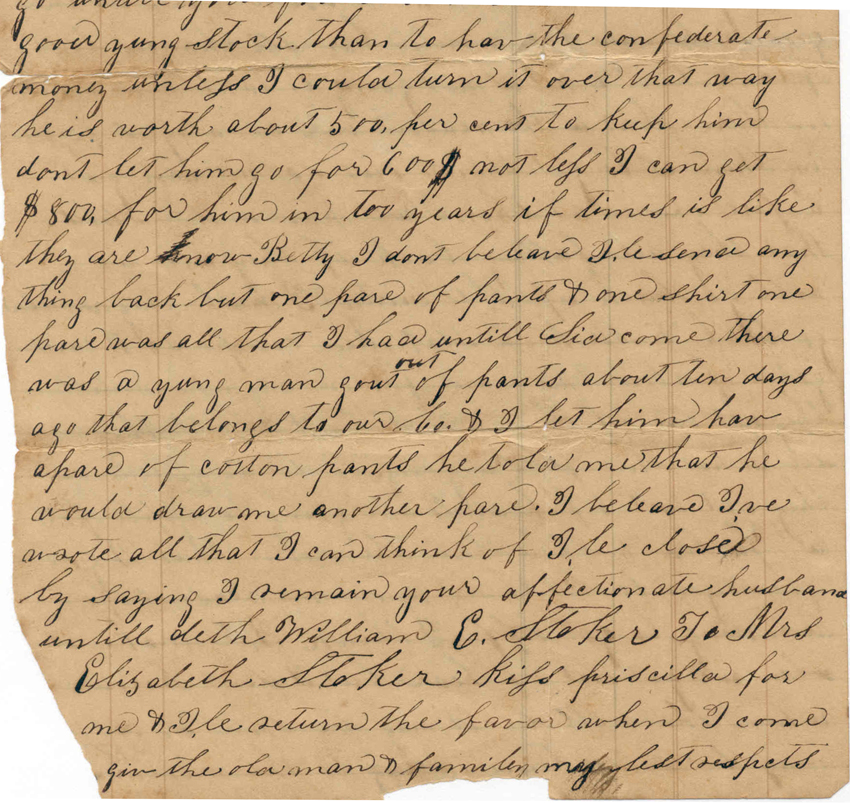 good yung stock than to hav the confederate
money unless I could turn it over that way
he is worth about 500, per cent to keep him
dont let him go for 600$ not less I can get
$800, for him in too years if times is like
they are know Betty I dont beleave I,le send any
thing back but one pare of pants & one shirt one
pare was all that I had untill Sid come there
was a yung man gout out of pants about ten days
ago that belongs to our Co. & I let him hav
apare of cotton pants he told me that he
would draw me another pare. I beleave I,ve
wrote all that I can think of I,le close
by saying I remain your affectionate husband
untill deth William E. Stoker To Mrs
Elizabeth Stoker kiss priscilla for
me & I,le return the favor when I come
giv the old man & family my best respects